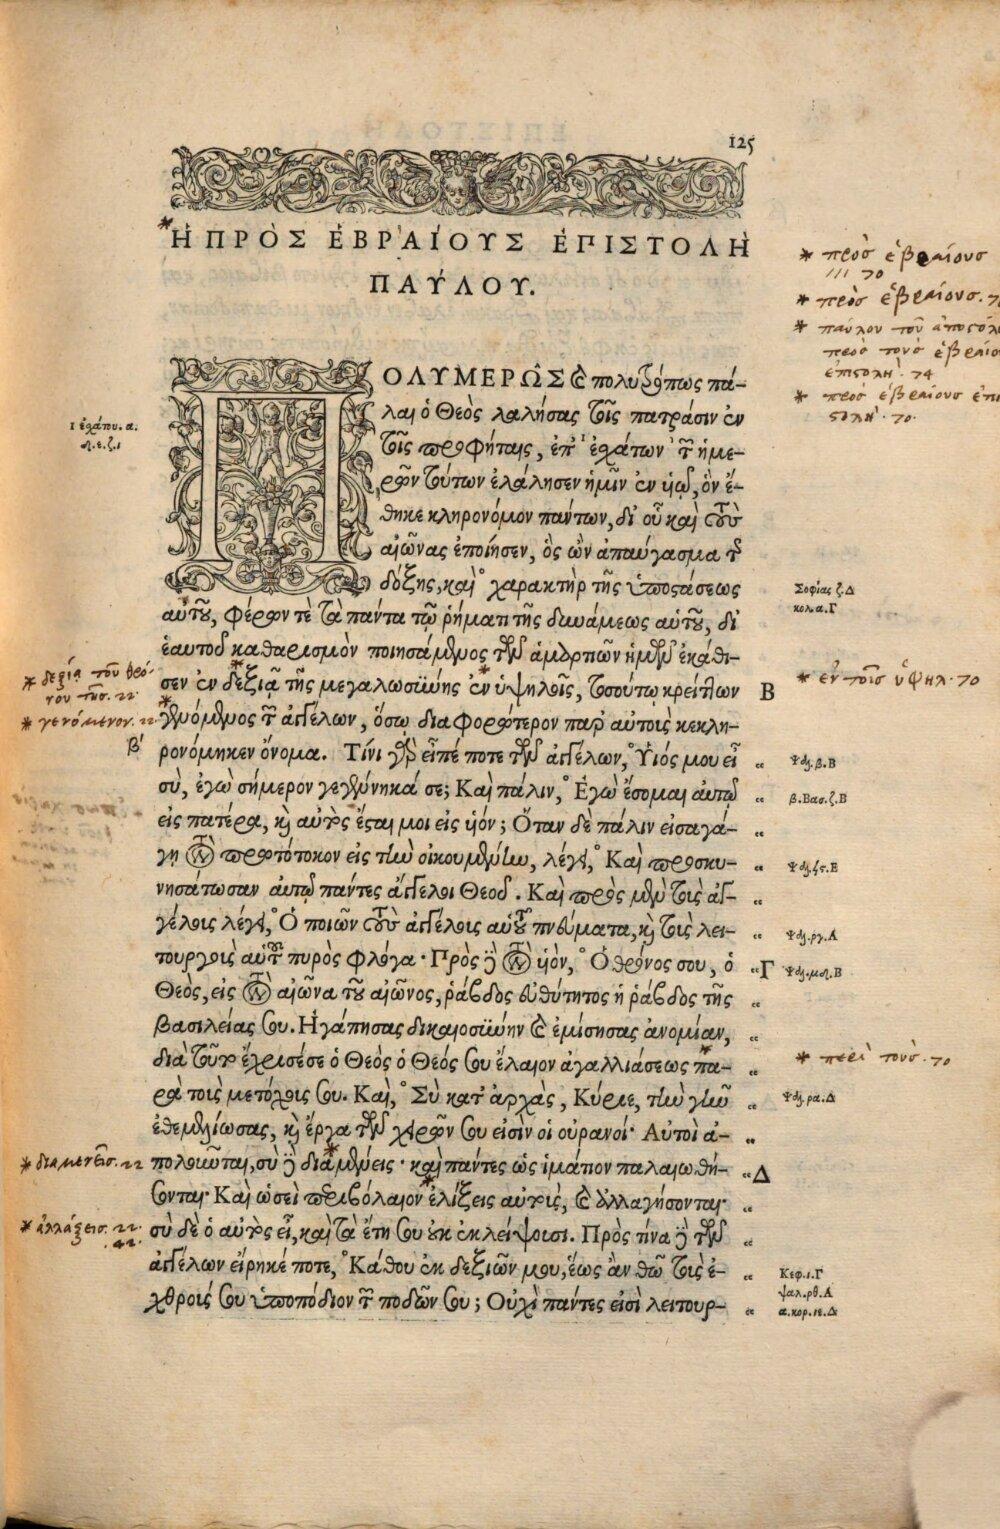 125
Ἡ ΠΡῸΣ ἙΒΡΑΊΟΥΣ ἘΠΙΣΤΟΛῊ
ΠΑΎΛΟΥ.
ΠΟΛΥΜΕΡΩ͂Σ καὶ πολυτρόπως πά-
λαι ὁ Θεὸς λαλήσας τοῖς πατράσιν ἐν
τοῖς προφήταις, ἐπ' ἐσχάτων τῶν ἡμε-
ρῶν τούτων ἐλάλησεν ἡμῖν ἐν υἱῷ, ὃν ἔ-
θηκε κληρονόμον πάντων, δι' οὗ καὶ τοὺς
αἰῶνας ἐποίησεν, ὃς ὢν ἀπαύγασμα τῆς
δόξης, καὶ χαρακτὴρ τῆς ὑποστάσεως
αὐτοῦ, φέρων τὲ τὰ πάντα τῷ ῥήματι τῆς δυνάμεως αὑτοῦ, δι'
ἑαυτοῦ καθαρισμὸν ποιησάμενος τῶν ἁμαρτιῶν ἡμῶν ἐκάθι-
σεν ἐν δεξιᾷ τῆς μεγαλωσύνης ἐν ὑψηλοῖς, τοσούτῳ κρείττων
Β
γενόμενος τῶν ἀγγέλων, ὅσῳ διαφορώτερον παρ' αὐτοὺς κεκλη-
ρονόμηκεν ὄνομα. Τίνι γὰρ εἶπέ ποτε τῶν ἀγγέλων, Ὑιός μου εἶ
σὺ, ἐγὼ σήμερον γεγέννηκά σε; Καὶ πάλιν, Ἐγὼ ἔσομαι αὐτῷ
εἰς πατέρα, καὶ αὐτὸς ἔσται μοι εἰς υἱόν; Ὅταν δὲ πάλιν εἰσαγά-
γῃ τὸν πρωτότοκον εἰς τὴν οἰκουμένην, λέγει, Καὶ προσκυ-
νησάτωσαν αὐτῷ πάντες ἄγγελοι Θεοῦ. Καὶ πρὸς μὲν τοὺς ἀγ-
γέλοις λέγει, Ὁ ποιῶν τοὺς ἀγγέλοις αὑτοῦ πνεύματα, καὶ τοὺς λει-
τουργοὺς αὑτοῦ πυρὸς φλόγα· Πρὸς δὲ τὸν υἱὸν, Ὁ θρόνος σου, ὁ
Γ
Θεὸς, εἰς τὸν αἰῶνα τοῦ αἰῶνος, ῥάβδος εὐθύτητος ἡ ῥάβδος τῆς
βασιλείας σου. Ἠγάπησας δικαιοσύνην καὶ ἐμίσησας ἀνομίαν,
διὰ τοῦτο ἔχρισέσε ὁ Θεὸς ὁ Θεός σου ἔλαιον ἀγαλλιάσεως πα-
ρὰ τοὺς μετόχοις σου. Καὶ, Σὺ κατ' ἀρχὰς, Κύριε, τὴν γῆν
ἐθεμελίωσας, καὶ ἔργα τῶν χειρῶν σου εἰσὶν οἱ οὐρανοί· Αὐτοὶ ἀ-
πολοῦνται, σὺ δὲ διαμένεις· καὶ πάντες ὡς ἱμάτιον παλαιωθή-
Δ
σονται· Καὶ ὡσεὶ περιβόλαιον ἑλίξεις αὐτοὺς, καὶ ἀλλαγήσονται·
σὺ δὲ ὁ αὐτὸς εἶ, καὶ τὰ ἔτη σου οὐκ ἐκλείψουσι. Πρὸς τίνα δὲ τῶν
ἀγγέλων εἴρηκέ ποτε, Κάθου ἐκ δεξιῶν μου, ἕως ἂν θῶ τοὺς ἐ-
χθρούς σου ὑποπόδιον τῶν ποδῶν σου; Οὐχὶ πάντες εἰσὶ λειτουρ-
1 ἐσχάτου. α.
* δεξιᾷ τοῦ θρό
νου τῆς. 22
* γενόμενον. 22
β'
* διαμενεῖς. 22
* ἀλλάξεις. 22.
42.
* πρὸσ ἑβραίουσ
111 70
* πρὸσ ἑβραίουσ.
* παύλου τοῦ ἀποστόλ
πρὸσ τοὺσ ἑβραίο
ἐπιστολή. 74
* πρὸσ ἑβραίουσ ἐπι
στολή. 70.
Σοφίας ζ.Δ
κολ.α.Γ
* ἐν τοῖσ ὑψηλ. 70
Ψαλ.β.Β
β.Βασ.ζ.Β
Ψαλ.ργ.Α
Ψαλ.μδ.Β
* περὶ τοὺσ. 70
Ψαλ.ρα.Δ
Κεφ.ι.Γ
ψαλ.ρθ.Α
α.κορ.ιε.Δ